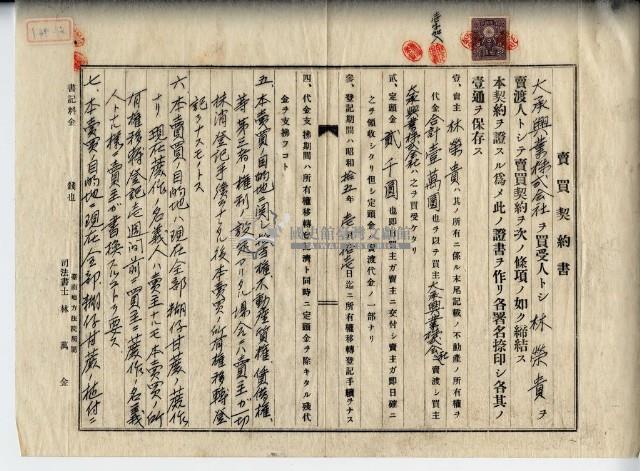 賣買契約書
大承興業株式会社ヲ買受人トシ 林榮貴ヲ
賣渡人トシテ賣買契約ヲ次ノ條項ノ如ク締結ス
本契約ヲ證スル爲メ此ノ證書ヲ作リ各署名捺印シ各其ノ
壹通ヲ保存ス
壹、賣主 林榮貴 ハ其ノ所有ニ係ル末尾記載ノ不動産ノ所有權ヲ
代金合計壹萬圓也ヲ以テ買主大承興業株式会社ニ賣渡シ買主
大承興業株式会社ハ之ヲ買受ケタリ
貳、定頭金 貳千圓也即日買主ガ賣主ニ交付シ賣主ガ即日確ニ
之ヲ領收シタリ但シ定頭金ハ賣渡代金ノ一部ナリ
參、登記期間ハ昭和拾五年 日迄ニ所有權移轉登記手續ヲナス
四、代金支拂期間ハ所有權移轉登記濟ト同時ニ定頭金ヲ除キタル殘代
金ヲ支拂フコト
五、本賣買ノ目的地ニ関シ 權不動産質權賃借權、
等第三者ノ權利ノ設定アリタル場合ニハ賣主ガ一切
抹消登記手續ヲナシタル後本賣買ノ所有權移轉登
記ヲナスモノトス
六、本賣買ノ目的地ハ現在全部糊仔甘蔗ノ蔗作
ナリ現在蔗作ノ名義人ハ賣主ナルモ本賣買ノ所
有權移轉登記 週間前ニ買主ニ蔗作ノ名義
人トナル樣ニ賣主ガ書換スルコトヲ要ス
七、本賣買ノ目的地ニ現在全部糊仔甘蔗ノ植付ニ
書記料金 錢也
臺南地方法院所屬
司法書士 林萬金
國史館臺灣文獻館